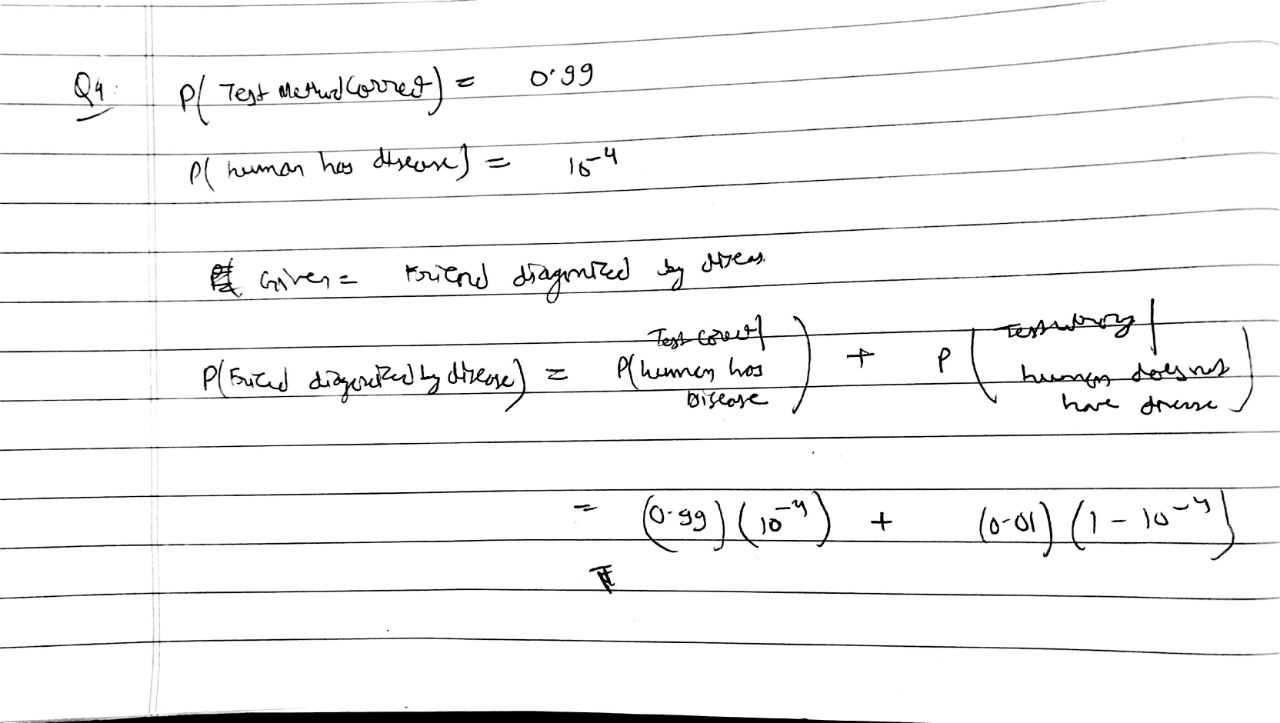 Q4: P( Test Method Correct) = 0.99
P( human has disease) = 10-4
Given = Friend diagnized by diseas
P(Friend diagnized by disease) = P( Test Correct | human has Disease ) + P ( Test wrong | human does not have disease )
= (0.99) (10-4) + (0.01) (1 - 10-4)